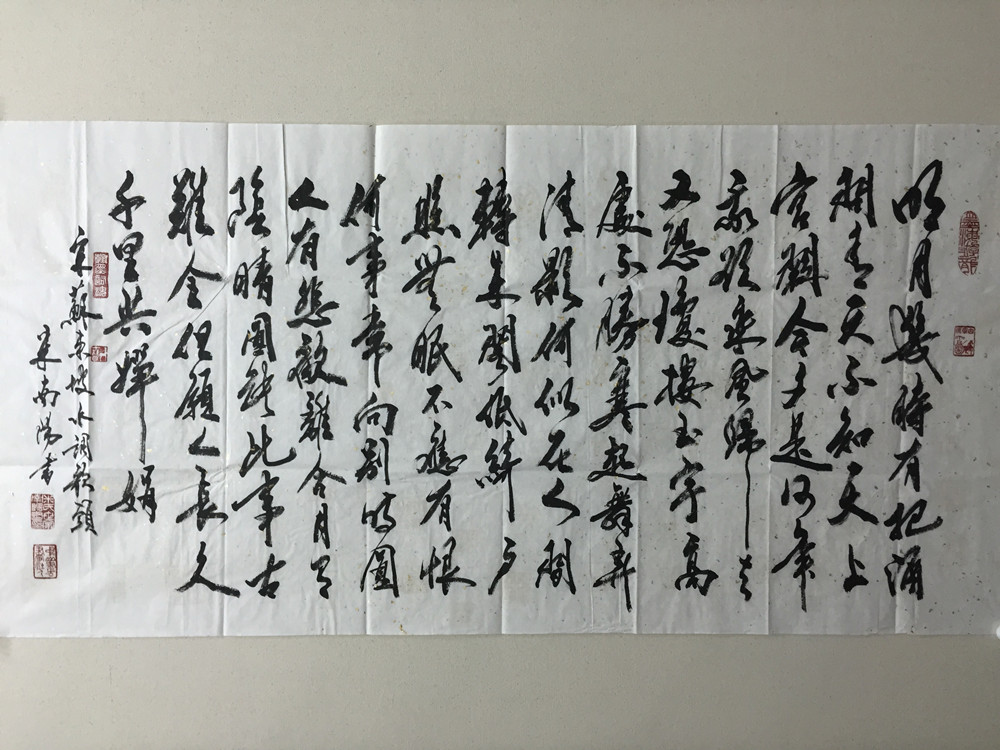 明月幾時有把酒
問青天不知天上
宮闕今夕是何年
我欲乘風歸去
又恐瓊樓玉宇高
處不勝寒起舞弄
清影何似在人間
轉朱閣低綺戶
照無眠不應有恨
何事常向別時圓
人有悲歡離合月有
陰晴圓缺此事古
難全但願人長久
千里共嬋娟
宋蘇東坡水調歌頭
宋南陽書